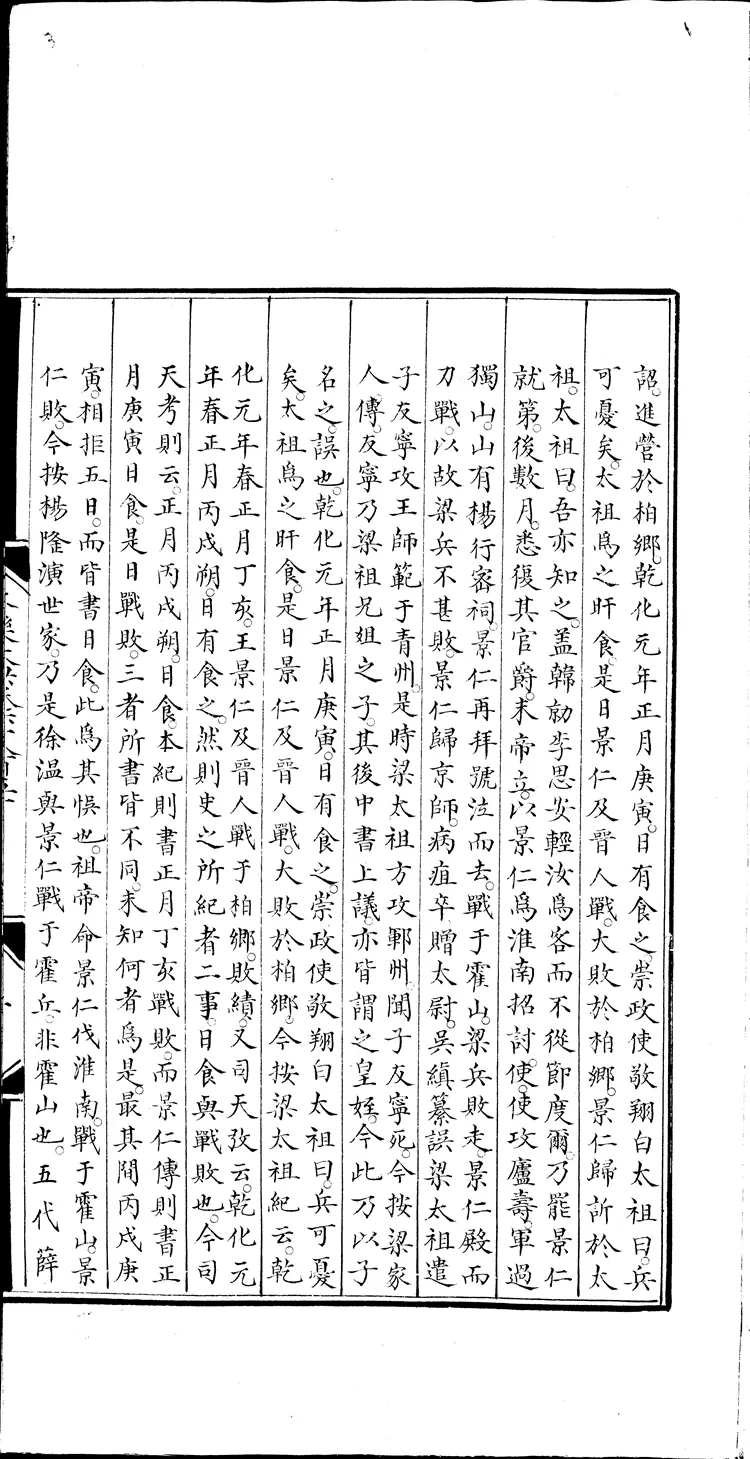 詔。進營於柏鄉。乾化元年正月庚寅。日有食之。崇政使敬翔白太祖曰。兵
可憂矣。太祖爲之旰食。是日景仁及晉人戰。大敗於柏鄉。景仁歸訢於太
祖。太祖曰。吾亦知之。盖韓勍李思安輕汝爲客而不從節度爾。乃罷景仁
就第。後數月。悉復其官爵。末帝立。以景仁爲淮南招討使。使攻廬壽。軍過
獨山。山有楊行密祠。景仁再拜號泣而去。戰于霍山。梁兵敗走。景仁殿而
力戰。以故梁兵不甚敗。景仁歸京師。病疽卒。贈太尉。吳縝纂誤梁太祖遣
子友寧攻王師範于青州。是時梁太祖方攻鄆州。聞子友寧死。今按梁家
人傳。友寧乃梁祖兄姐之子。其後中書上議。亦皆謂之皇姪。今此乃以子
名之。誤也。乾化元年正月庚寅。日有食之。崇政使敬翔白太祖曰。兵可憂
矣。太祖爲之旰食。是日景仁及晉人戰。大敗於柏鄉。今按梁太祖紀云。乾
化元年春正月丁亥。王景仁及晉人戰于柏鄉。敗績。又司天攷云。乾化元
年春正月丙戌朔。日有食之。然則史之所紀者二事。日食與戰敗也。今司
天考則云。正月丙戌朔。日食。本紀則書正月丁亥戰敗。而景仁傳則書正
月庚寅日食。是日戰敗。三者所書皆不同。未知何者爲是。最其間丙戌庚
寅。相拒五日。而皆書日食。此爲其悮也。祖帝命景仁伐淮南。戰于霍山。景
仁敗。今按楊隆演世家。乃是徐溫與景仁戰于霍丘。非霍山也。五代薛